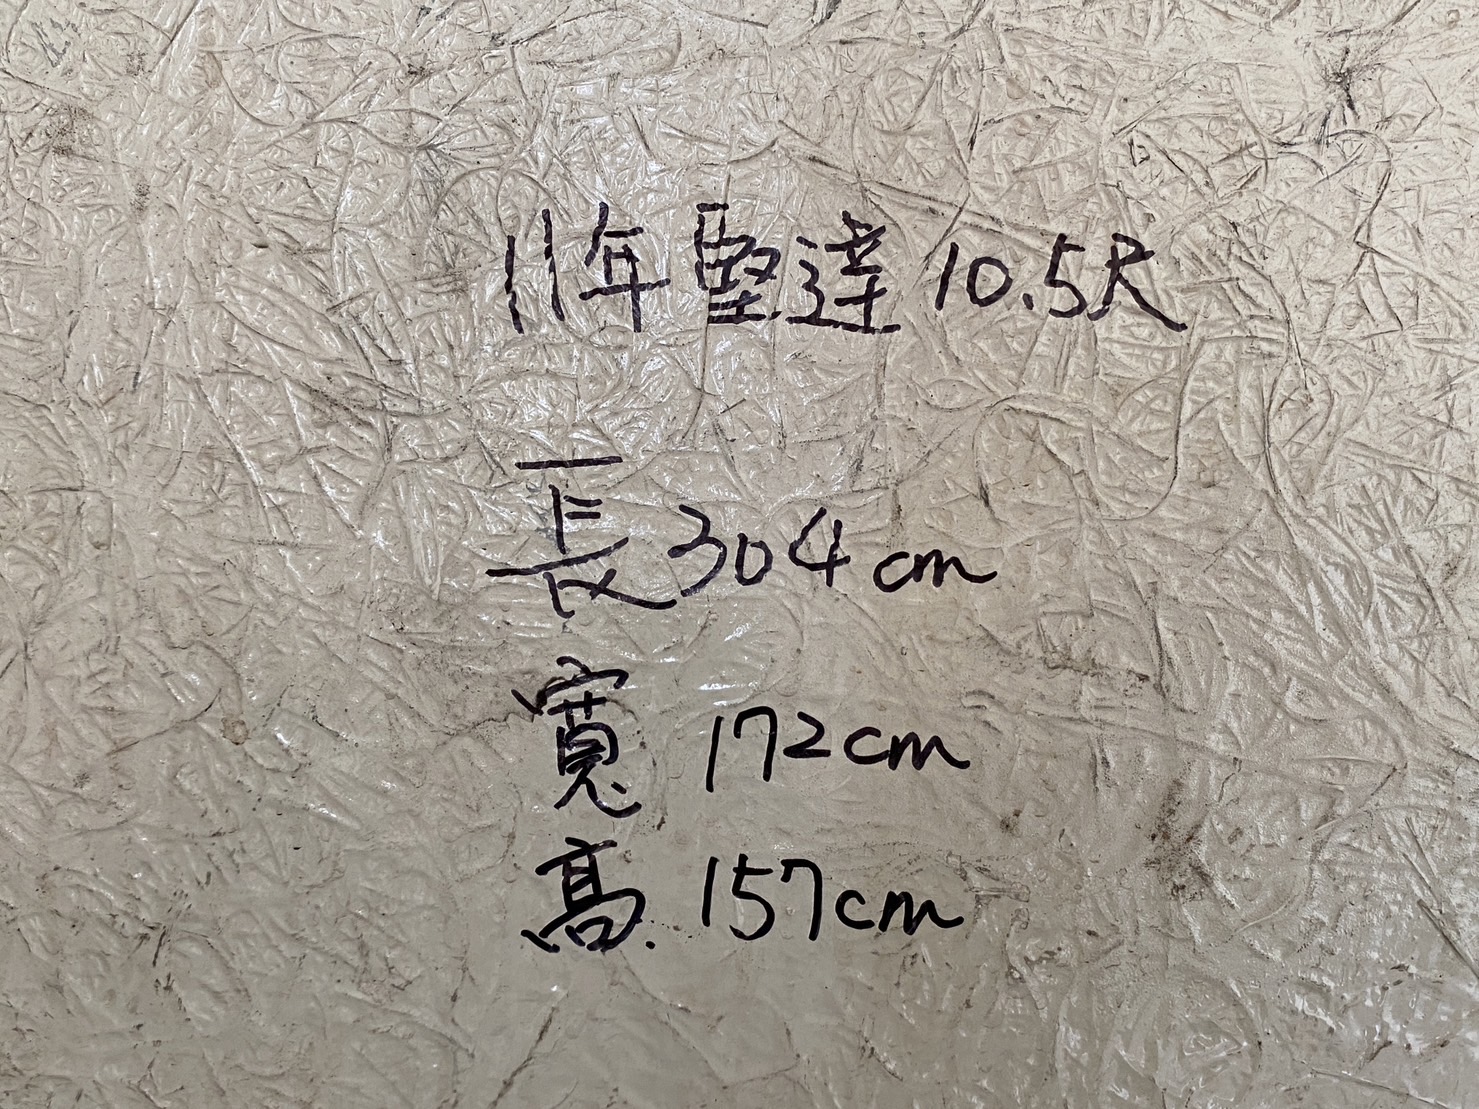 11年堅達10.5尺
長304cm
寬172cm
高.157cm